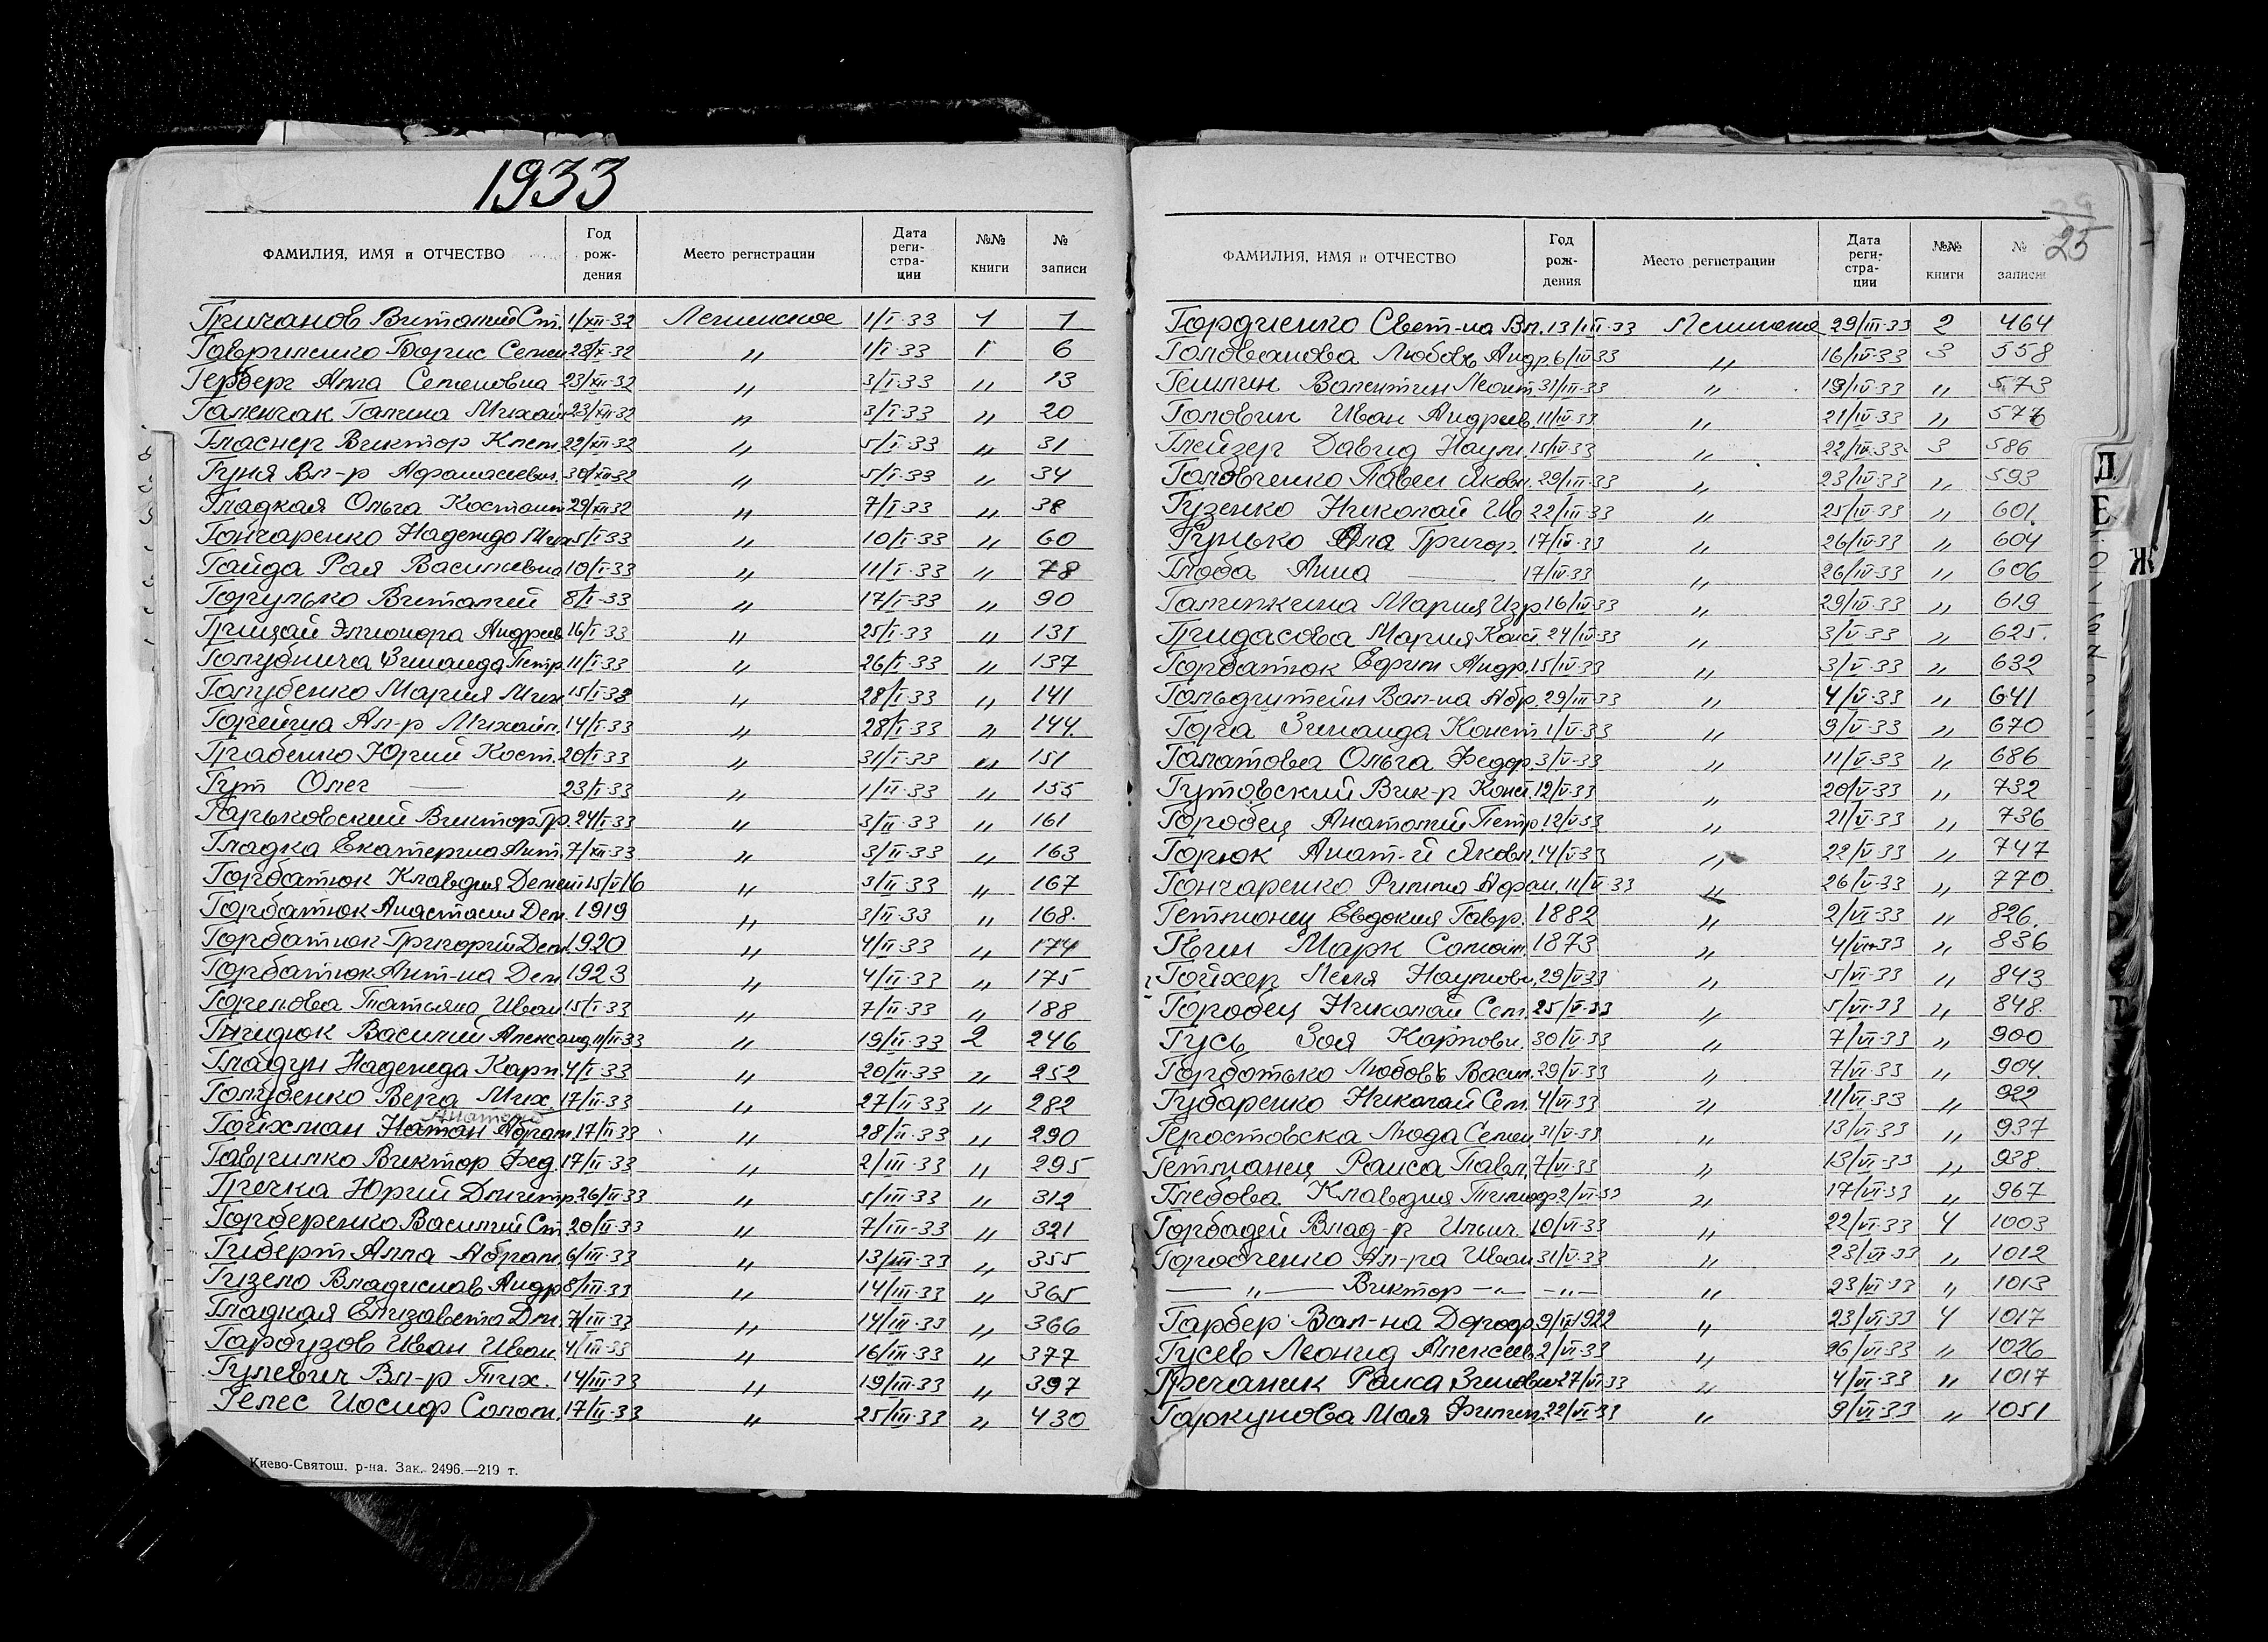 1933
ФАМИЛИЯ, ИМЯ и ОТЧЕСТВО Год рож-дения Место регистрации Дата реги-стра-ции №№ книги № записи
Гричанов Виталий Ст. 1/XII-32 Ленинское 1/I-33 1 1
Гавриленко Борис Семен 28/X-32 " 1/I-33 1 6
Герберг Алла Семеновна 23/XII-32 " 3/I-33 " 13
Галенчак Галина Михай 23/XII-32 " 3/I-33 " 20
Гласнер Виктор Клем. 22/XII-32 " 5/I-33 " 31
Гуня Вл-р Афанасиевич 30/XII-32 " 5/I-33 " 34
Гладкая Ольга Костант 29/XII-32 " 7/I-33 " 38
Гончаренко Надежда Мих 5/I-33 " 10/I-33 " 60
Гайда Рая Васильевна 10/I-33 " 11/I-33 " 78
Горулько Виталий 8/I-33 " 17/I-33 " 90
Грицай Элионора Андрев 16/I-33 " 25/I-33 " 131
Голубнича Зинаида Петр. 11/I-33 " 26/I-33 " 137
Голубенко Мария Мих. 15/I-33 " 28/I-33 " 141
Ал-р Михайл. 14/I-33 " 28/I-33 " 144.
Грабенко Юрий Кост. 20/I-33 " 31/I-33 " 151
Гут Олег — 23/I-33 " 1/II-33 " 155
Гарьковский Виктор Гр. 24/I-33 " 3/II-33 " 161
Гладка Екатерина Ант. 7/XII-33 " 3/II-33 " 163
Горбатюк Клавдия Демен 15/V16 " 3/II-33 " 167
Горбатюк Анастасия Дем. 1919 " 3/II-33 " 168.
Горбатюк Григорий Дем. 1920 " 4/II-33 " 174
Горбатюк Ант-на Дем 1923 " 4/II-33 " 175
Горелова Татьяна Иван 15/I-33 " 7/II-33 " 188
Гнидюк Василий Александ 11/II-33 " 19/II-33 2 246
Гладун Надежда Карп. 4/I-33 " 20/II-33 " 252
Голубенко Вера Мих. 17/II-33 " 27/II-33 " 282
Анатолий
Гойхман Натан Абрам. 17/II-33 " 28/II-33 " 290
Гаврилко Виктор Фед. 17/II-33 " 2/III-33 " 295
Гречка Юрий Дмитр 26/II-33 " 5/III-33 " 312
Горберенко Василий Ст. 20/II-33 " 7/III-33 " 321
Гиберт Алла Абрам. 6/III-33 " 13/III-33 " 355
Гизело Владислав Андр 8/III-33 " 14/III-33 " 365
Гладкая Елизавета Дм. 7/III-33 " 14/III-33 " 366
Гарбузов Иван Иван. 4/III-33 " 16/III-33 " 377
Гулевич Вл-р Тих. 14/III-33 " 19/III-33 " 397
Гелес Иосиф Солом. 17/II-33 " 25/III-33 " 430
Киево-Святош. р-на. Зак. 2496.—219 т.
25
ФАМИЛИЯ, ИМЯ и ОТЧЕСТВО Год рож-дения Место регистрации Дата реги-стра-ции №№ книги № записи
Гордиенко Свет-на Вл. 13/III-33 29/III-33 2 464
Голованова Любовь Андр. 6/IV-33 " 16/IV-33 3 558
Валентин Леонт. 31/III-33 " 19/IV-33 " 573
Головин Иван Андрев 11/IV-33 " 21/IV-33 " 576
Глейзер Давид Наум. 15/IV-33 " 22/IV-33 3 586
Головченко Павел Яковл. 29/III-33 " 23/IV-33 " 593
Гузенко Николай Ив 22/III-33 " 25/IV-33 " 601
Гунько Ала Григор. 17/IV-33 " 26/IV-33 " 604
Глоба Анна — 17/IV-33 " 26/IV-33 " 606
Галипкина Мария Изр. 16/IV-33 " 29/IV-33 " 619
Гридасова Мария Конст. 24/IV-33 " 3/V-33 " 625.
Горбатюк Ефрим Андр. 15/IV-33 " 3/V-33 " 632
Гольдштейн Вал-на Абр. 29/III-33 " 4/V-33 " 641
Гора Зинаида Конст 1/V-33 " 9/V-33 " 670
Галатова Ольга Федор. 3/V-33 " 11/V-33 " 686
Гутовский Вик-р Конст. 12/V-33 " 20/V-33 " 732
Городец Анатолий Петр. 12/V-33 " 21/V-33 " 736
Горюк Анат-й Яковл. 14/V-33 " 22/V-33 " 747
Гончаренко Римма Афан. 11/V-33 " 26/V-33 " 770.
Гетманец Евдокия Гавр. 1882 " 2/VI-33 " 826.
Гвин Марк Солом. 1873 " 4/VI-33 " 836
Гойхер Леня Наумови. 29/V-33 " 5/VI-33 " 843
Городец Николай Сем. 25/V-33 " 5/VI-33 " 848.
Гусь Зоя Карповн. 30/V-33 " 7/VI-33 " 900
Горботько Любовь Васил. 29/V-33 " 7/VI-33 " 904.
Губаренко Николай Сем. 4/VI-33 " 11/VI-33 " 922
Геростовска Люда Семен 31/V-33 " 13/VI-33 " 937
Гетманец Раиса Павл. 7/VI-33 " 13/VI-33 " 938.
Глебова Клавдия Тимоф 2/VI-33 " 17/VI-33 " 967
Горбадей Влад-р Ильич. 10/VI-33 " 22/VI-33 4 1003
Ал-ра Иван 31/V-33 " 23/VI-33 " 1012
— " — Виктор — " — — " — " 23/VI-33 " 1013
Гарбер Вал-на Дороф. 1922 " 23/VI-33 4 1017
Гусев Леонид Алексеев. 2/VI-33 " 26/VI-33 " 1026
Гречаник Раиса Зиновие 27/VI-33 " 4/VI-33 " 1017
Гаркунова Мая Филип. 22/VI-33 " 9/VI-33 " 1051
Д
Е
Ж